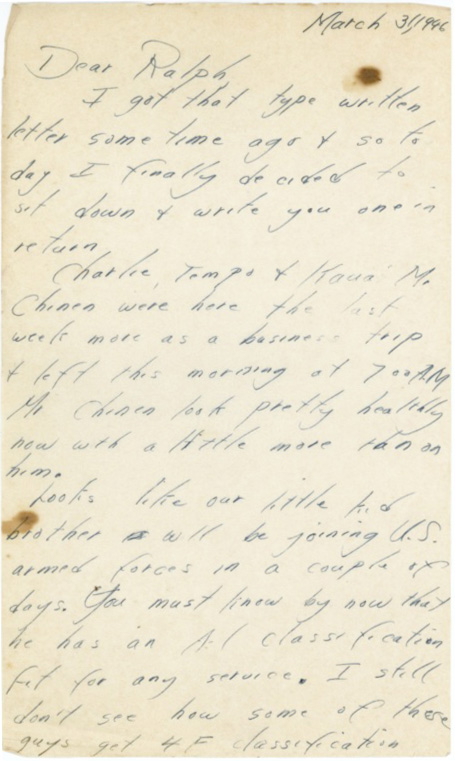 March 31, 1946
Dear Ralph,
I got that type written
letter some time ago & so to
day I finally decided to
sit down & write you one in
return.
Charlie, Tempo & Kauai Mr.
Chinen were here the last
week more as a business trip
& left this morning at 7:00 AM
Mr Chinen look pretty healthly
now with a little more tan on
him.
Looks like our little kid
brother will be joining U.S.
armed forces in a couple of
days. You must know by now that
he has an A-1 classification
fit for any service. I still
don't see how some of these
guys get 4F classification